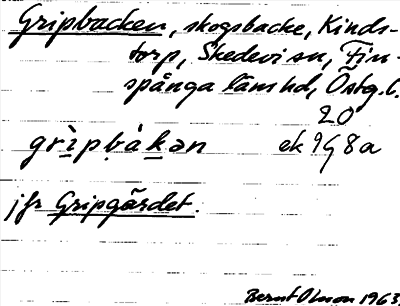 Gripbacken, skogsbacke, Kinds-
torp, Skedevi sn, Fin-
spånga läns hd, Östg. l.
20
grìpbàkən ek 9G8a
jfr Gripgärdet.
Bernt Olsson 1963.